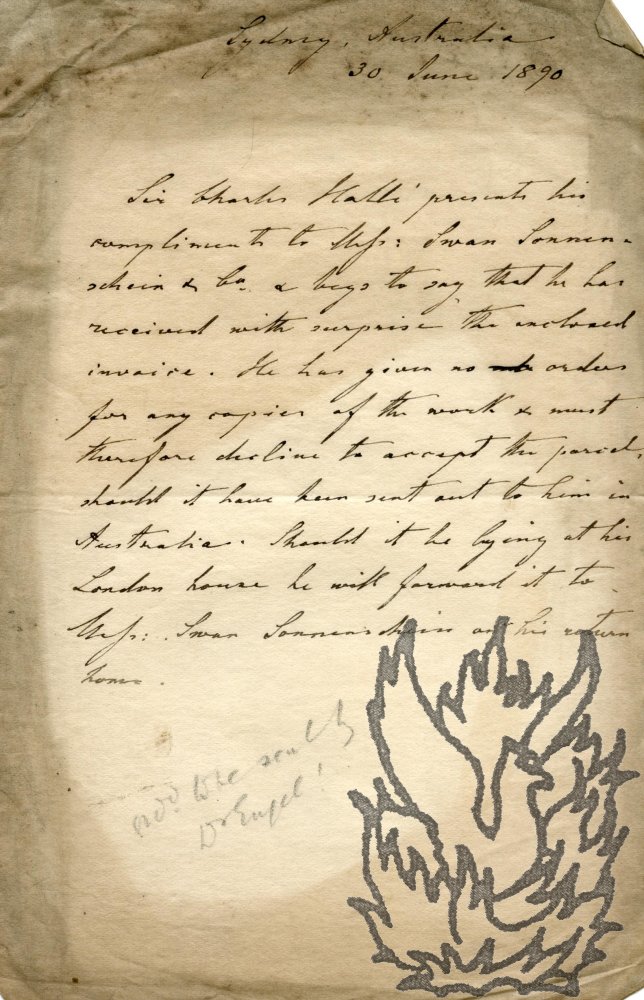 Sydney, Australia
30 June 1890
Sir Charles Hallé presents his
compliments to Mess: Swan Sonnen-
schein & Co. & begs to say that he has
received with surprise the enclosed
invoice. He has given no orders
for any copies of the work & must
therefore decline to accept the parcel,
should it have been sent out to him in
Australia. Should it be lying at his
London house he will forward it to
Mess: Swan Sonnenschein on his return
home.
to be sent by
Dr Engel!